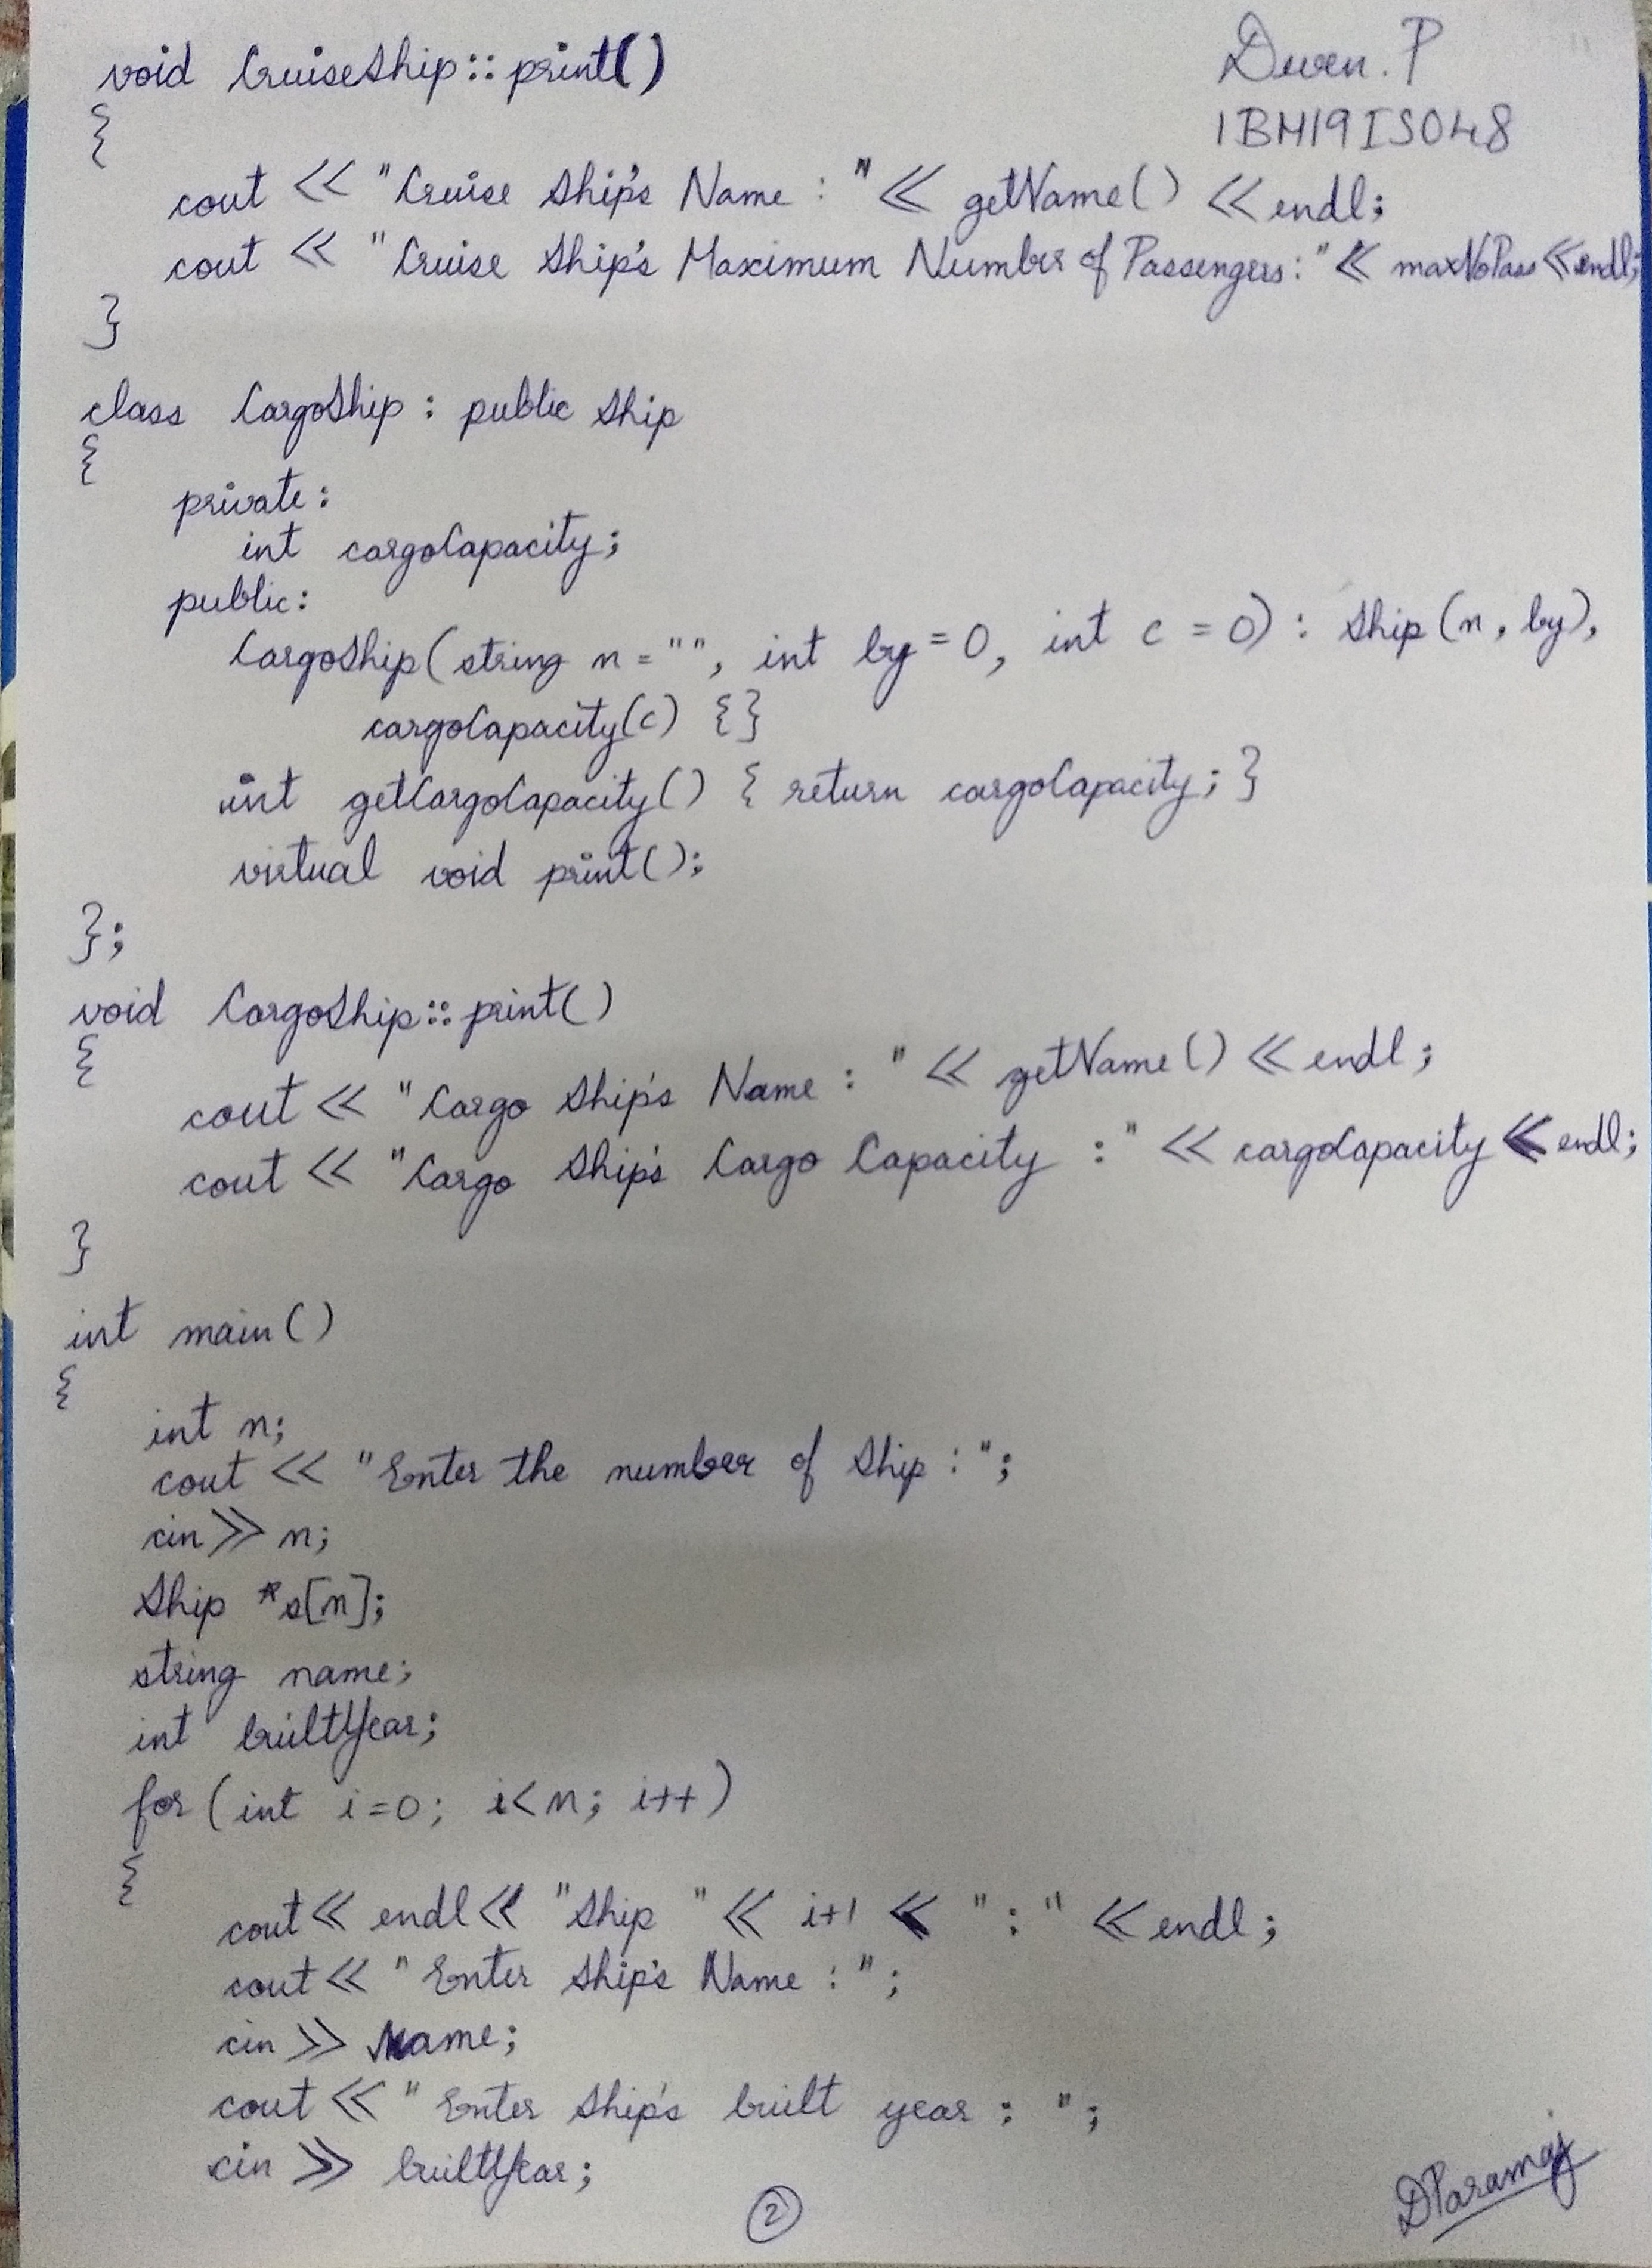 void CruiseShip::print()
Deven. P
1BM19IS048
{
cout << "Cruise Ship's Name : " << getName() << endl;
cout << "Cruise Ship's Maximum Number of Passengers: " << maxNoPass << endl;
}
class CargoShip : public Ship
{
private:
int cargoCapacity;
public:
CargoShip(string n = "", int by = 0, int c = 0) : Ship(n, by),
cargoCapacity(c) {}
int getCargoCapacity() { return cargoCapacity; }
virtual void print();
};
void CargoShip::print()
{
cout << "Cargo Ship's Name : " << getName() << endl;
cout << "Cargo Ship's Cargo Capacity : " << cargoCapacity << endl;
}
int main()
{
int n;
cout << "Enter the number of Ship : ";
cin >> n;
Ship *s[n];
string name;
int builtYear;
for (int i=0; i<n; i++)
{
cout << endl << "Ship " << i+1 << " : " << endl;
cout << "Enter Ship's Name : ";
cin >> name;
cout << "Enter Ship's built year : ";
cin >> builtYear;
2
DParamaj